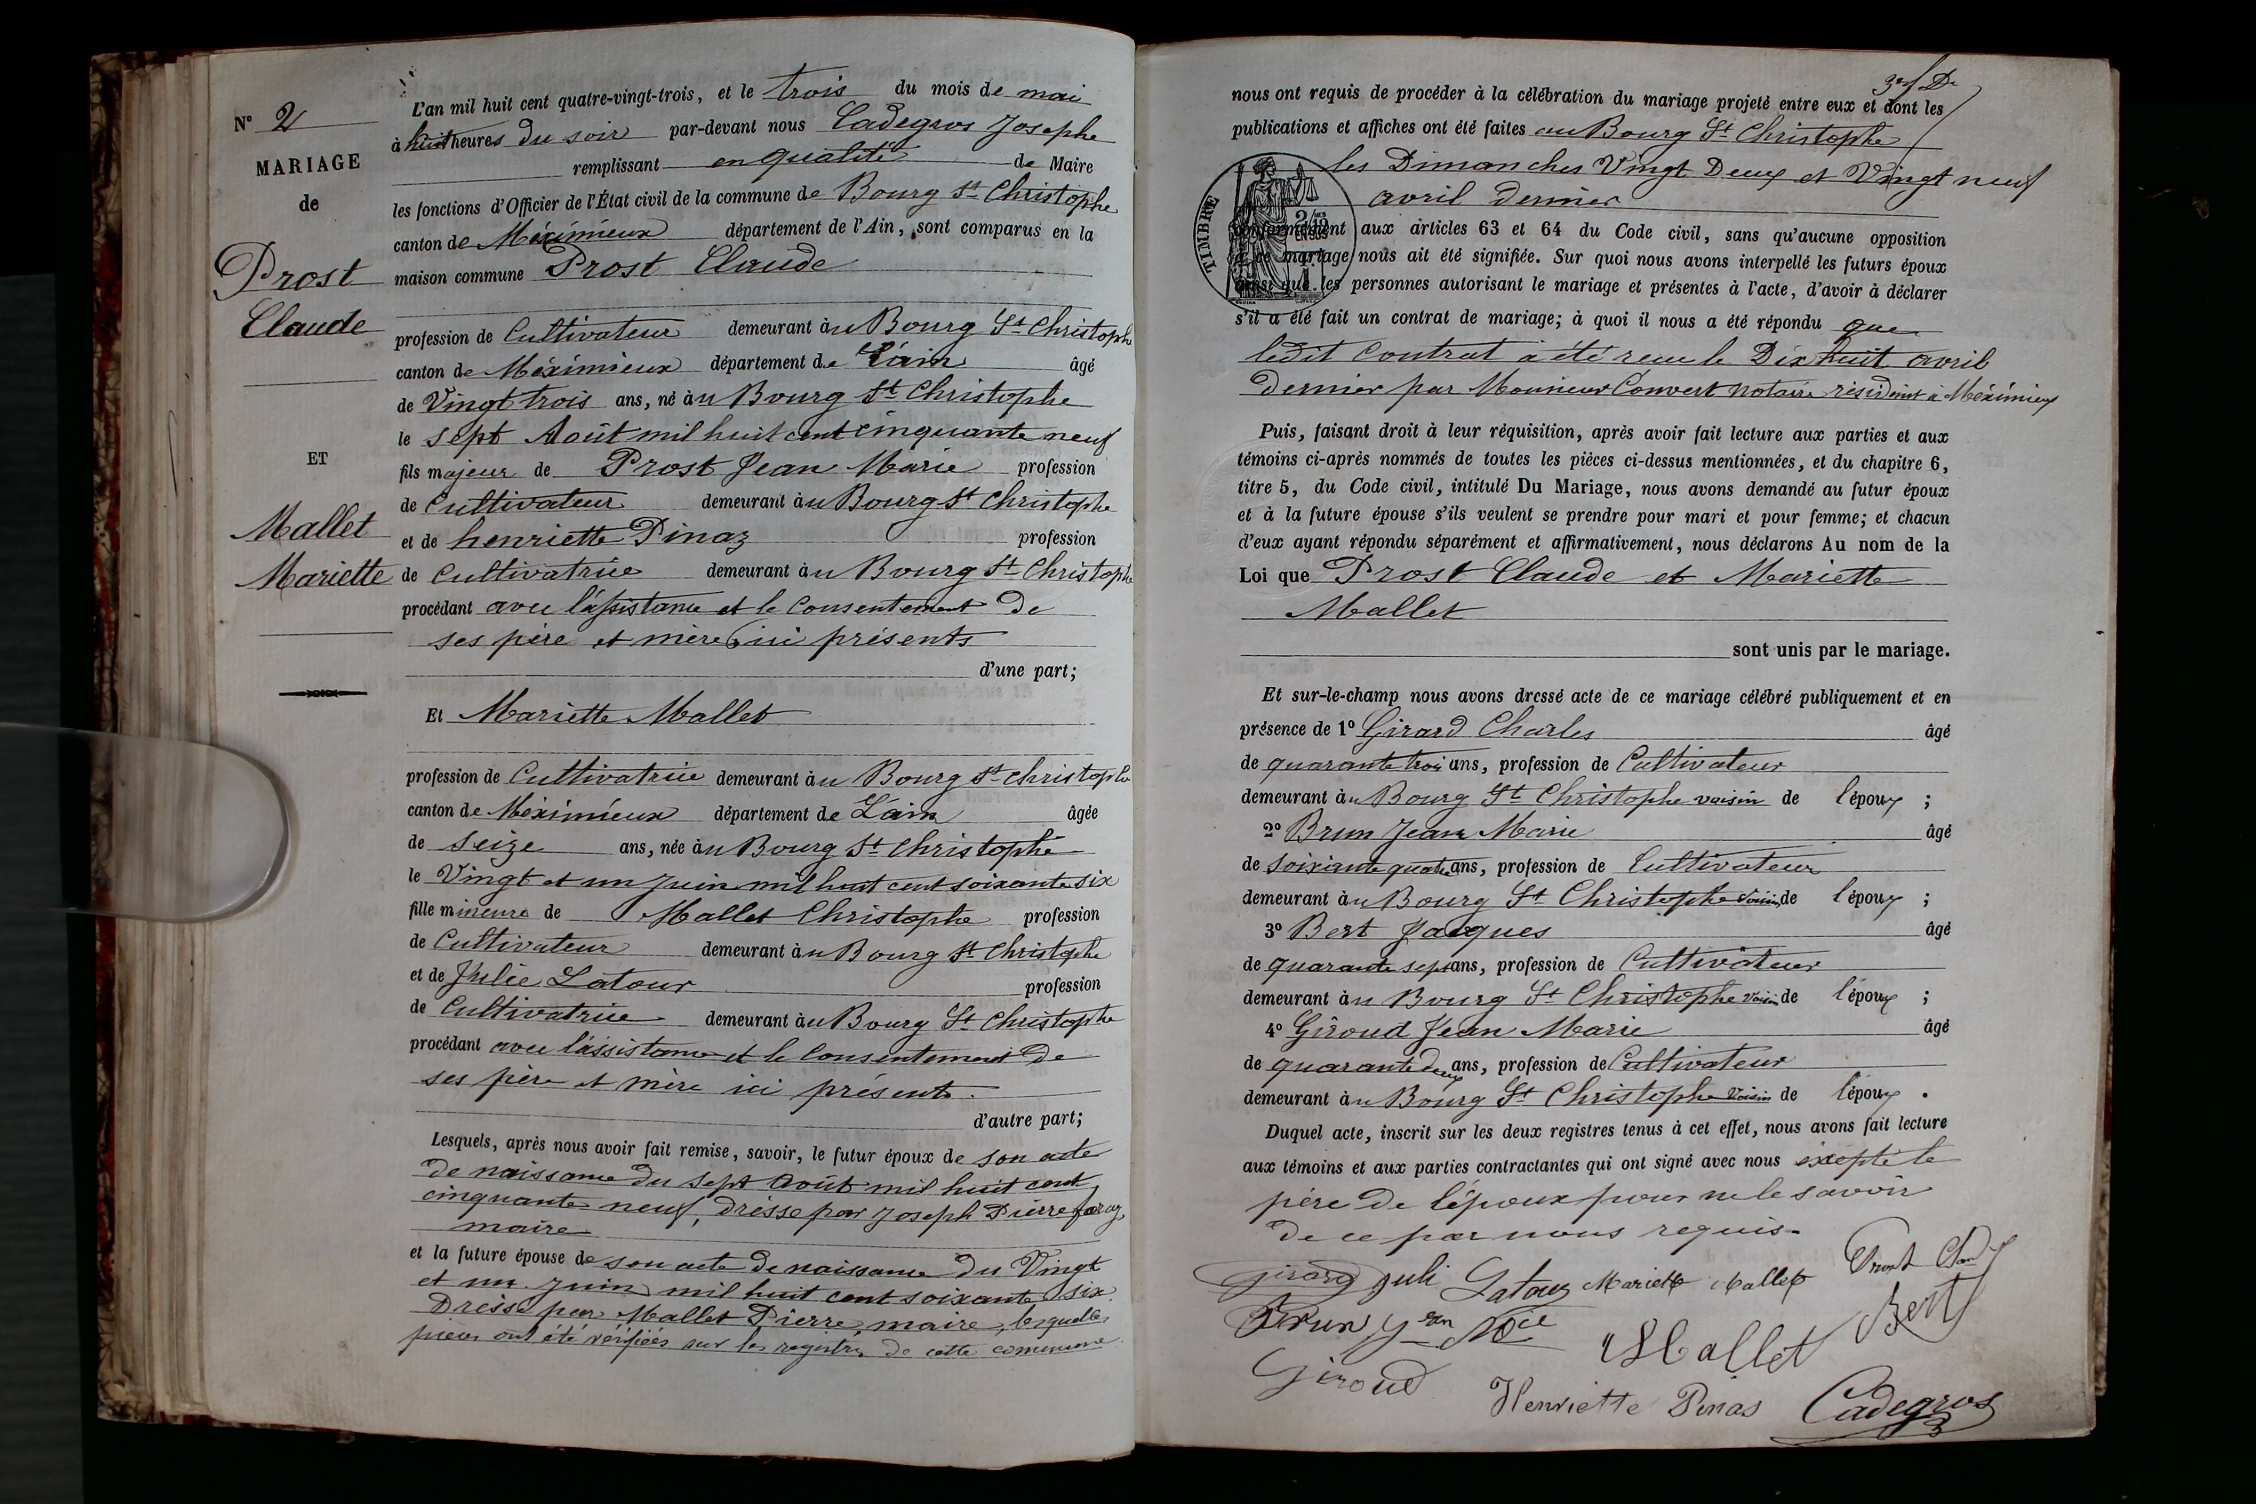 N° 2
MARIAGE
de
Prost
Claude
ET
Mallet
Mariette
L'an mil huit cent quatre-vingt-trois, et le trois du mois de mai
à huit heures du soir par-devant nous Cadegros Josephe
remplissant en qualité de Maire
les fonctions d'Officier de l'État civil de la commune de Bourg St Christophe
canton de Méximieux département de l'Ain, sont comparus en la
maison commune Prost Claude
profession de Cultivateur demeurant à u Bourg St Christophe
canton de Méximieux département de L'ain âgé
de Vingt trois ans, né à u Bourg St Christophe
le sept Août mil huit cent cinquante neuf
fils majeur de Prost Jean Marie profession
de Cultivateur demeurant à u Bourg St Christophe
et de henriette Pinaz profession
de Cultivatrice demeurant à u Bourg St Christophe
procédant avec l'assistance et le Consentement de
ses père et mère ici présents
d'une part;
Et Mariette Mallet
profession de Cultivatrice demeurant à u Bourg St Christophe
canton de Méximieux département de L'ain âgée
de Seize ans, née à u Bourg St Christophe
le Vingt et un Juin mil huit cent soixante six
fille mineure de Mallet Christophe profession
de Cultivateur demeurant à u Bourg St Christophe
et de Julie Latour profession
de Cultivatrice demeurant à u Bourg St Christophe
procédant avec l'assistance et le Consentement de
ses père et mère ici présents.
d'autre part;
Lesquels, après nous avoir fait remise, savoir, le futur époux de son acte
de naissance du sept Août mil huit cent
cinquante neuf, dressé par Joseph Pierre
maire
et la future épouse de son acte de naissance du Vingt
et un Juin mil huit cent soixante six
Dressé par Mallet Pierre, maire, lesquelles
pièces ont été vérifiées sur les registres de cette commune.
3e f De
nous ont requis de procéder à la célébration du mariage projeté entre eux et dont les
publications et affiches ont été faites au Bourg St Christophe
les Dimanches Vingt Deux et Vingt neuf
avril dernier
TIMBRE
2/10
EN SUS
conformément aux articles 63 et 64 du Code civil, sans qu'aucune opposition
à ce mariage nous ait été signifiée. Sur quoi nous avons interpellé les futurs époux
ainsi que les personnes autorisant le mariage et présentes à l'acte, d'avoir à déclarer
s'il a été fait un contrat de mariage; à quoi il nous a été répondu que
ledit Contrat à été recu le Dix huit avril
dernier par Monsieur Convert notaire résidant à Méximieux
Puis, faisant droit à leur réquisition, après avoir fait lecture aux parties et aux
témoins ci-après nommés de toutes les pièces ci-dessus mentionnées, et du chapitre 6,
titre 5, du Code civil, intitulé Du Mariage, nous avons demandé au futur époux
et à la future épouse s'ils veulent se prendre pour mari et pour femme; et chacun
d'eux ayant répondu séparément et affirmativement, nous déclarons Au nom de la
Loi que Prost Claude et Mariette
Mallet
sont unis par le mariage.
Et sur-le-champ nous avons dressé acte de ce mariage célébré publiquement et en
présence de 1° Girard Charles âgé
de quarante trois ans, profession de Cultivateur
demeurant à u Bourg St Christophe voisin de l'époux ;
2° Brun Jean Marie âgé
de soixiante quatre ans, profession de Cultivateur
demeurant à u Bourg St Christophe voisin de l'époux ;
3° Bert Jacques âgé
de quarante sept ans, profession de Cultivateur
demeurant à u Bourg St Christophe voisin de l'époux ;
4° Giroud Jean Marie âgé
de quarante deux ans, profession de Cultivateur
demeurant à u Bourg St Christophe voisin de l'époux .
Duquel acte, inscrit sur les deux registres tenus à cet effet, nous avons fait lecture
aux témoins et aux parties contractantes qui ont signé avec nous excepté le
père de l'époux pour ne le savoir
de ce par nous requis.
Girard Juli Latour Mariette Mallet Prost
Brun Jean Mie Mallet Bert
Giroud Henriette Pinas Cadegros